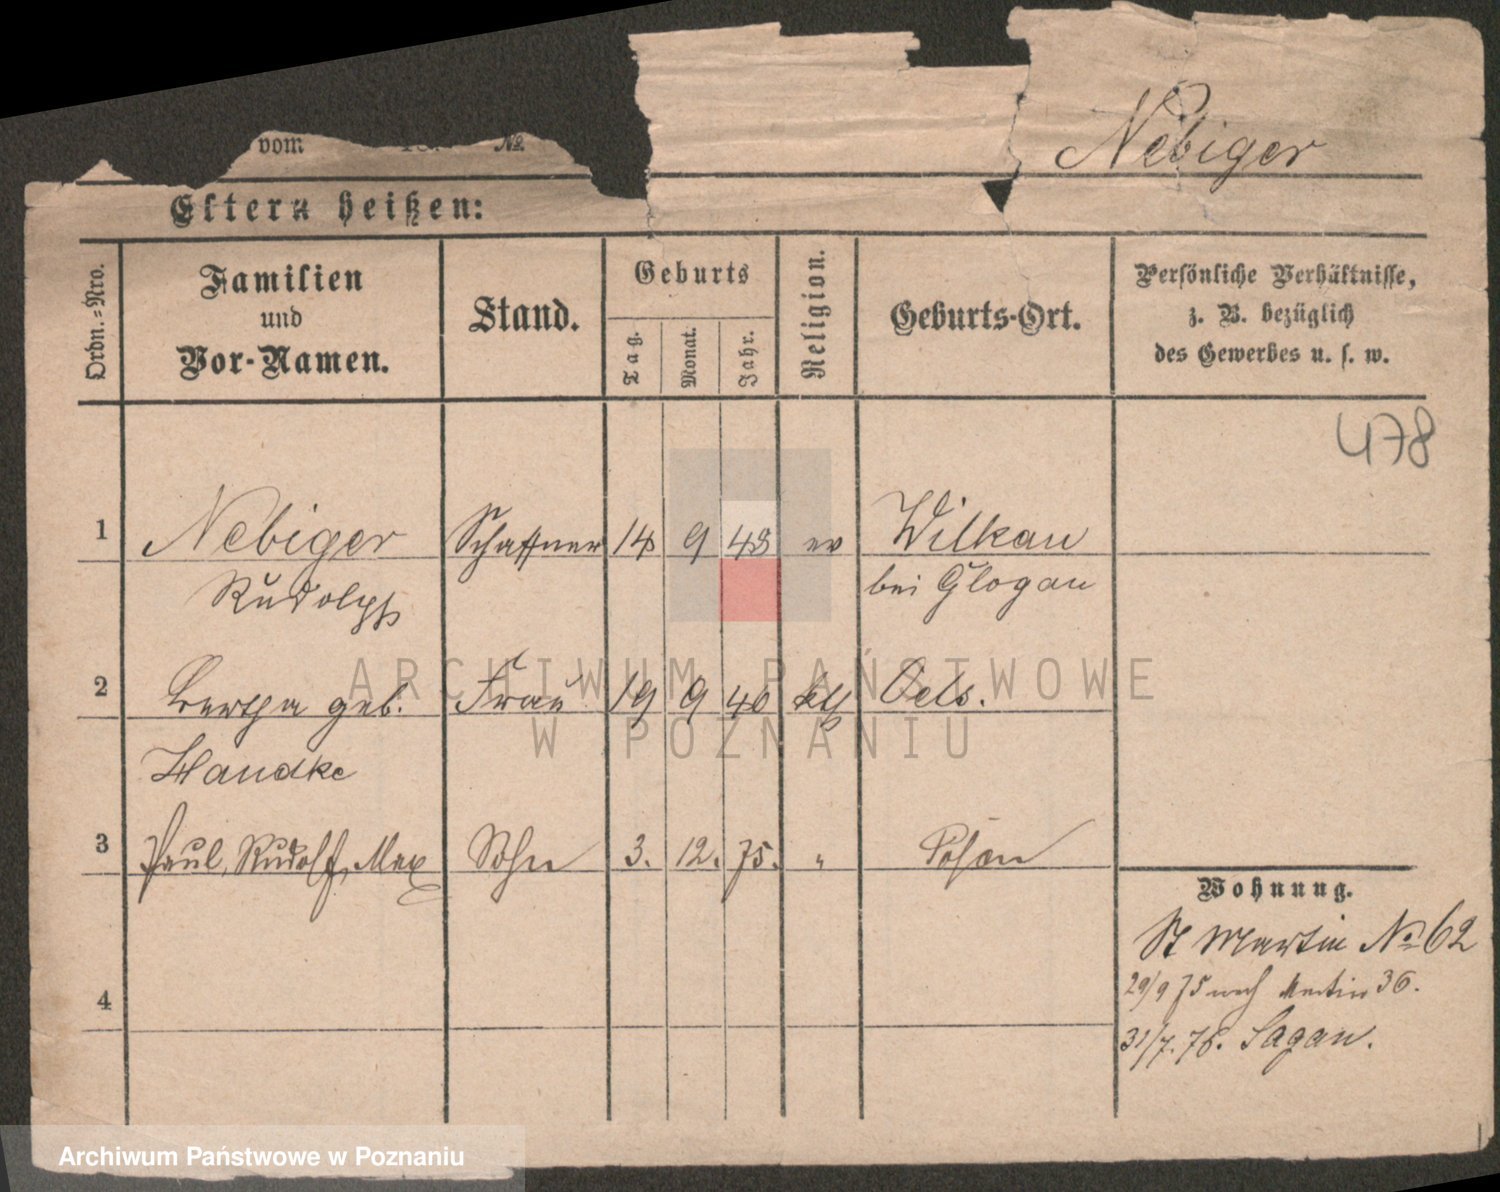 Nebiger
vom 18 No.
Eltern heißen:
Ordn.=Nro.
Familien
und
Vor-Namen.
Stand.
Geburts
Tag.
Monat.
Jahr.
Religion.
Geburts-Ort.
Persönliche Verhältnisse,
z. B. bezüglich
des Gewerbes u. s. w.
478
1 Nebiger Schaffner 14 9 48 ev Wilkau
Rudolph bei Glogau
2 Bertha geb. Frau 19 9 46 kth Oels.
Handke
3 Paul, Rudolf, Max Sohn 3. 12. 75. " Posen
4
Wohnung.
St Martin No 62
29/9 75 nach Martin 36.
31/7. 76. Sagan.
ARCHIWUM PAŃSTWOWE
W POZNANIU
Archiwum Państwowe w Poznaniu